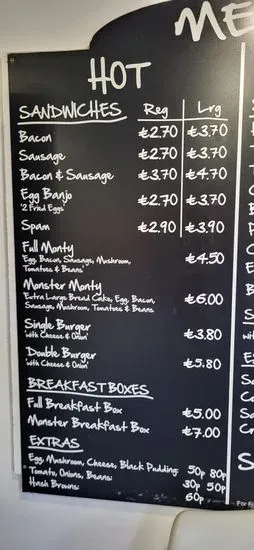 ME
HOT
SANDWICHES Reg Lrg
Bacon £2.70 £3.70
Sausage £2.70 £3.70
Bacon & Sausage £3.70 £4.70
Egg Banjo £2.70 £3.70
'2 Fried Eggs'
Spam £2.90 £3.90
Full Monty £4.50
'Egg, Bacon, Sausage, Mushroom,
Tomatoes & Beans'
Monster Monty £6.00
'Extra Large Bread Cake, Egg, Bacon,
Sausage, Mushroom, Tomatoes & Beans
Single Burger £3.80
'with Cheese & Onion'
Double Burger £5.80
'with Cheese & Onion'
BREAKFAST BOXES
Full Breakfast Box £5.00
Monster Breakfast Box £7.00
EXTRAS
Egg, Mushroom, Cheese, Black Pudding: 50p 80p
Tomato, Onions, Beans: 30p 50p
Hash Browns: 60p